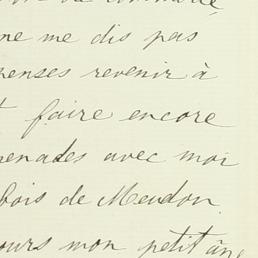 ne me dis pas
penses revenir à
faire encore
menades avec moi
bois de Meudon.
ours mon petit ân